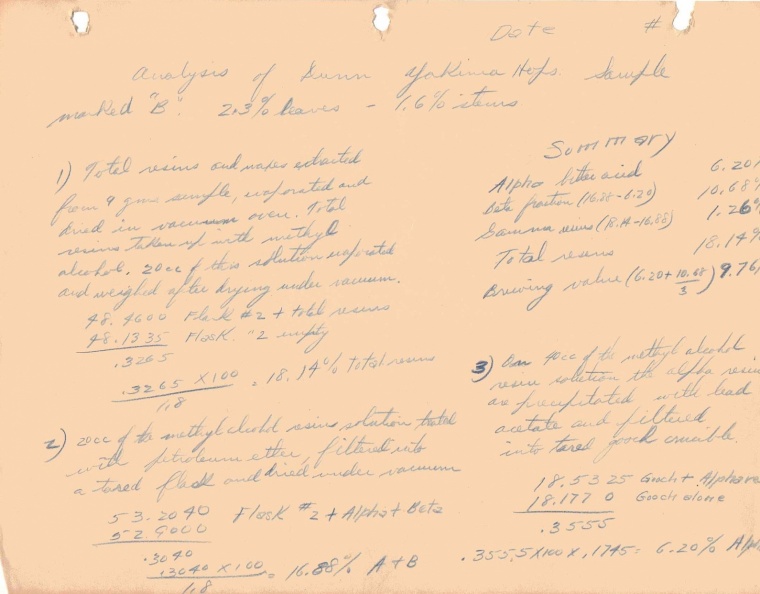 Date #
Analysis of Gunn Yakima Hops. Sample
marked "B". 2.3% leaves - 1.6% stems
1) Total resins and waxes extracted
from 9 gms sample, evaporated and
dried in vacuum oven. Total
resins taken up with methyl
alcohol. 20cc of this solution evaporated
and weighed after drying under vacuum.
48.4600 Flask #2 + total resins
48.1335 Flask "2 empty
.3265
.3265 X 100 = 18.14% total resins
1.8
2) 20cc of the methyl alcohol resins solution treated
with petroleum ether, filtered into
a tared flask and dried under vacuum
53.2040 Flask #2 + Alpha + Beta
52.9000
.3040
.3040 X 100 = 16.88% A+B
1.8
Summary
Alpha bitter acid 6.20
Beta fraction (16.88-6.20) 10.68%
Gamma resins (18.14-16.88) 1.26%
Total resins 18.14%
Brewing value (6.20 + 10.68) 9.76
3
3) On 40cc of the methyl alcohol
resin solution the alpha resin
are precipitated with lead
acetate and filtered
into tared gooch crucible.
18.5325 Gooch + Alpha re
18.1770 Gooch alone
.3555
.3555 X 100 X .1745 = 6.20% Alph